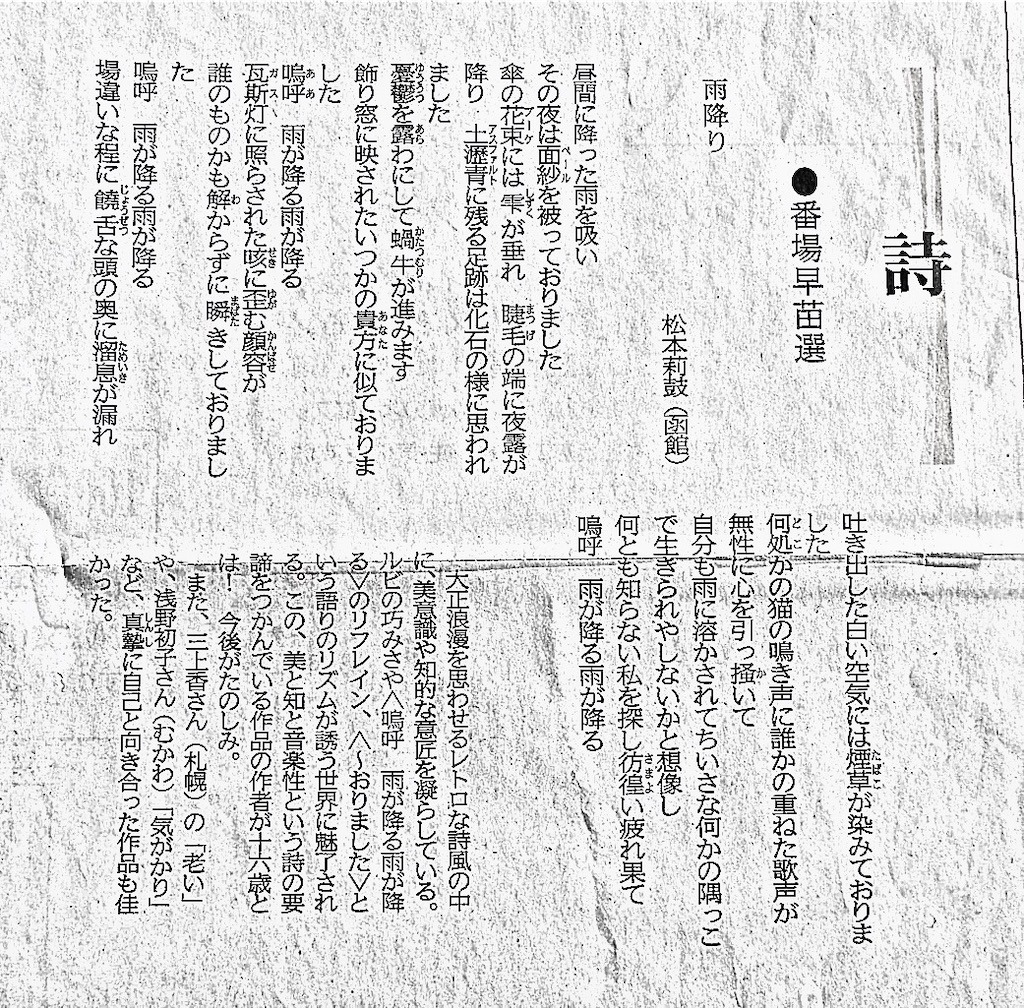 詩
●番場早苗選
雨降り
松本莉鼓（函館）
昼間に降った雨を吸い
その夜は面紗を被っておりました
傘の花束には雫が垂れ　睫毛の端に夜露が
降り　土瀝青に残る足跡は化石の様に思われ
ました
憂鬱を露わにして蝸牛が進みます
飾り窓に映されたいつかの貴方に似ておりま
した
嗚呼　雨が降る雨が降る
瓦斯灯に照らされた咳に歪む顔容が
誰のものかも解からずに瞬きしておりまし
た
嗚呼　雨が降る雨が降る
場違いな程に饒舌な頭の奥に溜息が漏れ
吐き出した白い空気には煙草が染みておりま
した
何処かの猫の鳴き声に誰かの重ねた歌声が
無性に心を引っ掻いて
自分も雨に溶かされてちいさな何かの隅っこ
で生きられやしないかと想像し
何とも知らない私を探し彷徨い疲れ果て
嗚呼　雨が降る雨が降る
大正浪漫を思わせるレトロな詩風の中
に、美意識や知的な意匠を凝らしている。
ルビの巧みさや＜嗚呼　雨が降る雨が降
る＞のリフレイン、＜～おりました＞と
いう語りのリズムが誘う世界に魅了され
る。この、美と知と音楽性という詩の要
諦をつかんでいる作品の作者が十六歳と
は！　今後がたのしみ。
また、三上香さん（札幌）の「老い」
や、浅野初子さん（むかわ）「気がかり」
など、真摯に自己と向き合った作品も佳
かった。